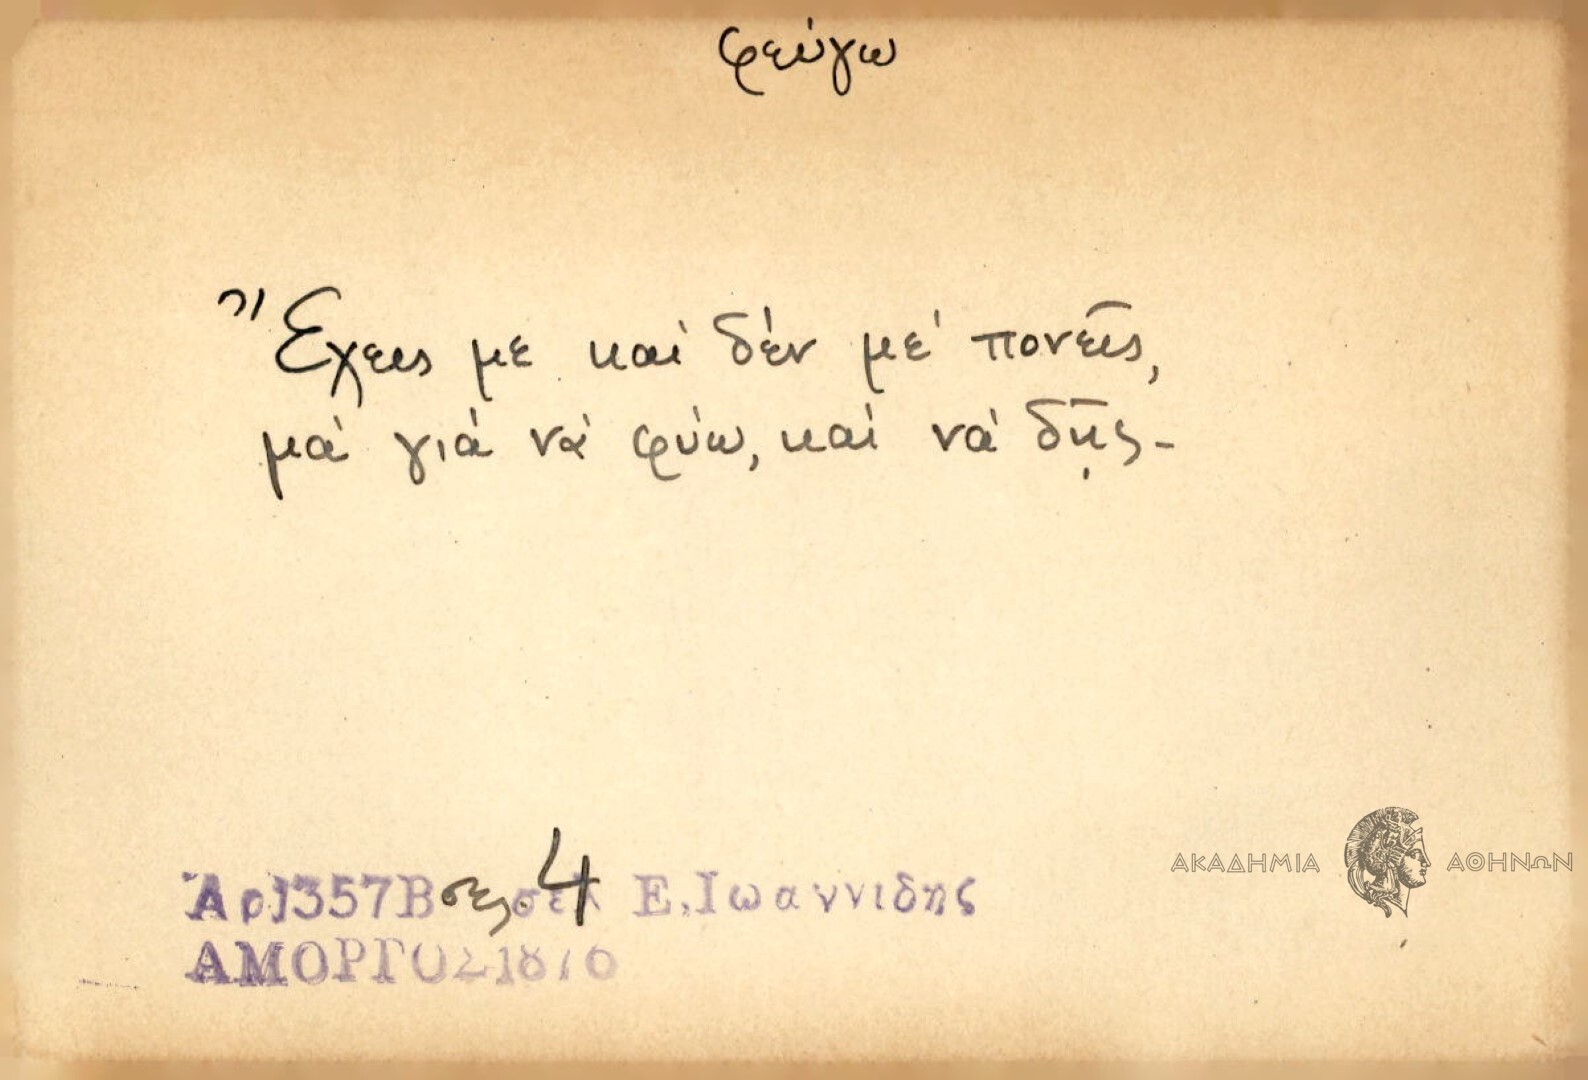 φεύγω
Ἔχεις με καὶ δέν μέ πονεῖς,
μά γιά νά φύω, καί νά δῇς-
Ἀρ1357Β σελ. 4 Ε.Ιωαννιδης
ΑΜΟΡΓΟΣ1876
ΑΚΑΔΗΜΙΑ ΑΘΗΝΩΝ